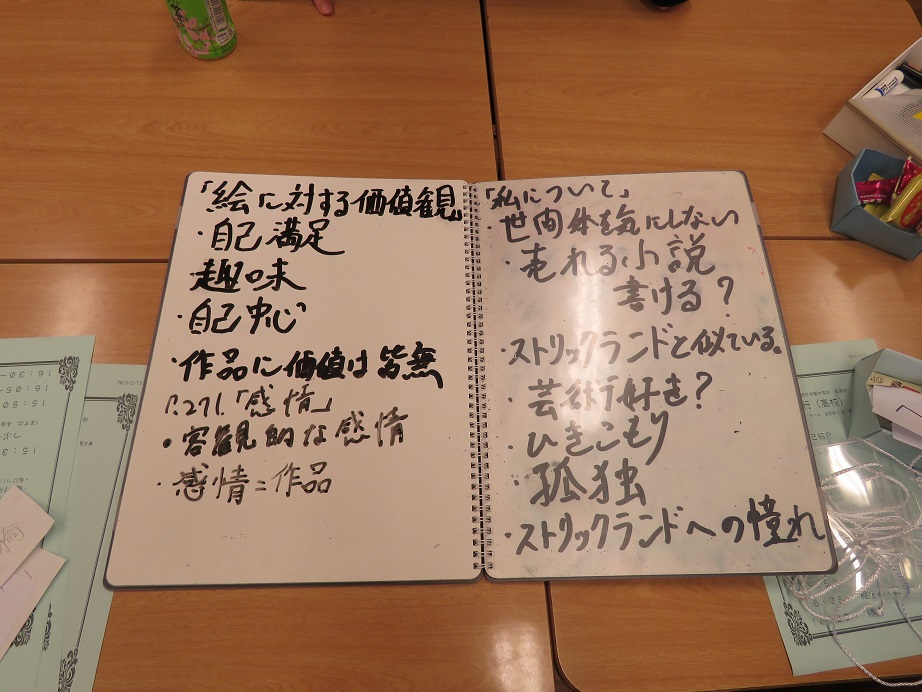 「絵に対する価値観」
・自己満足
・趣味
・自己中心
・作品に価値は皆無
P.271.「感情」
・客観的な感情
・感情=作品
「私について」
・世間体を気にしない
・売れる小説
書ける?
・ストリックランドと似ている。
・芸術好き?
・ひきこもり
・孤独
・ストリックランドへの憧れ